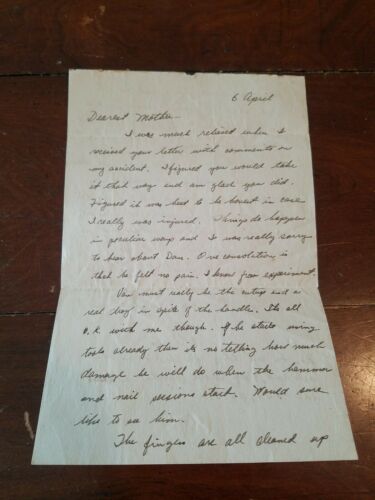 6 April
Dearest Mother -
I was much relieved when I
received your letter with comments on
my accident. I figured you would take
it that way and am glad you did.
Figured it was best to be honest in case
I really was injured. Things do happen
in peculiar ways and I was really sorry
to hear about Dan. One consolation is
that he felt no pain, I know from experiment.
Van must really be the cutup and a
real boy in spite of the handle. Its all
O.K. with me though. If he starts using
tools already then its no telling how much
damage he will do when the hammer
and nail sessions start. Would sure
like to see him.
The fingers are all cleaned up